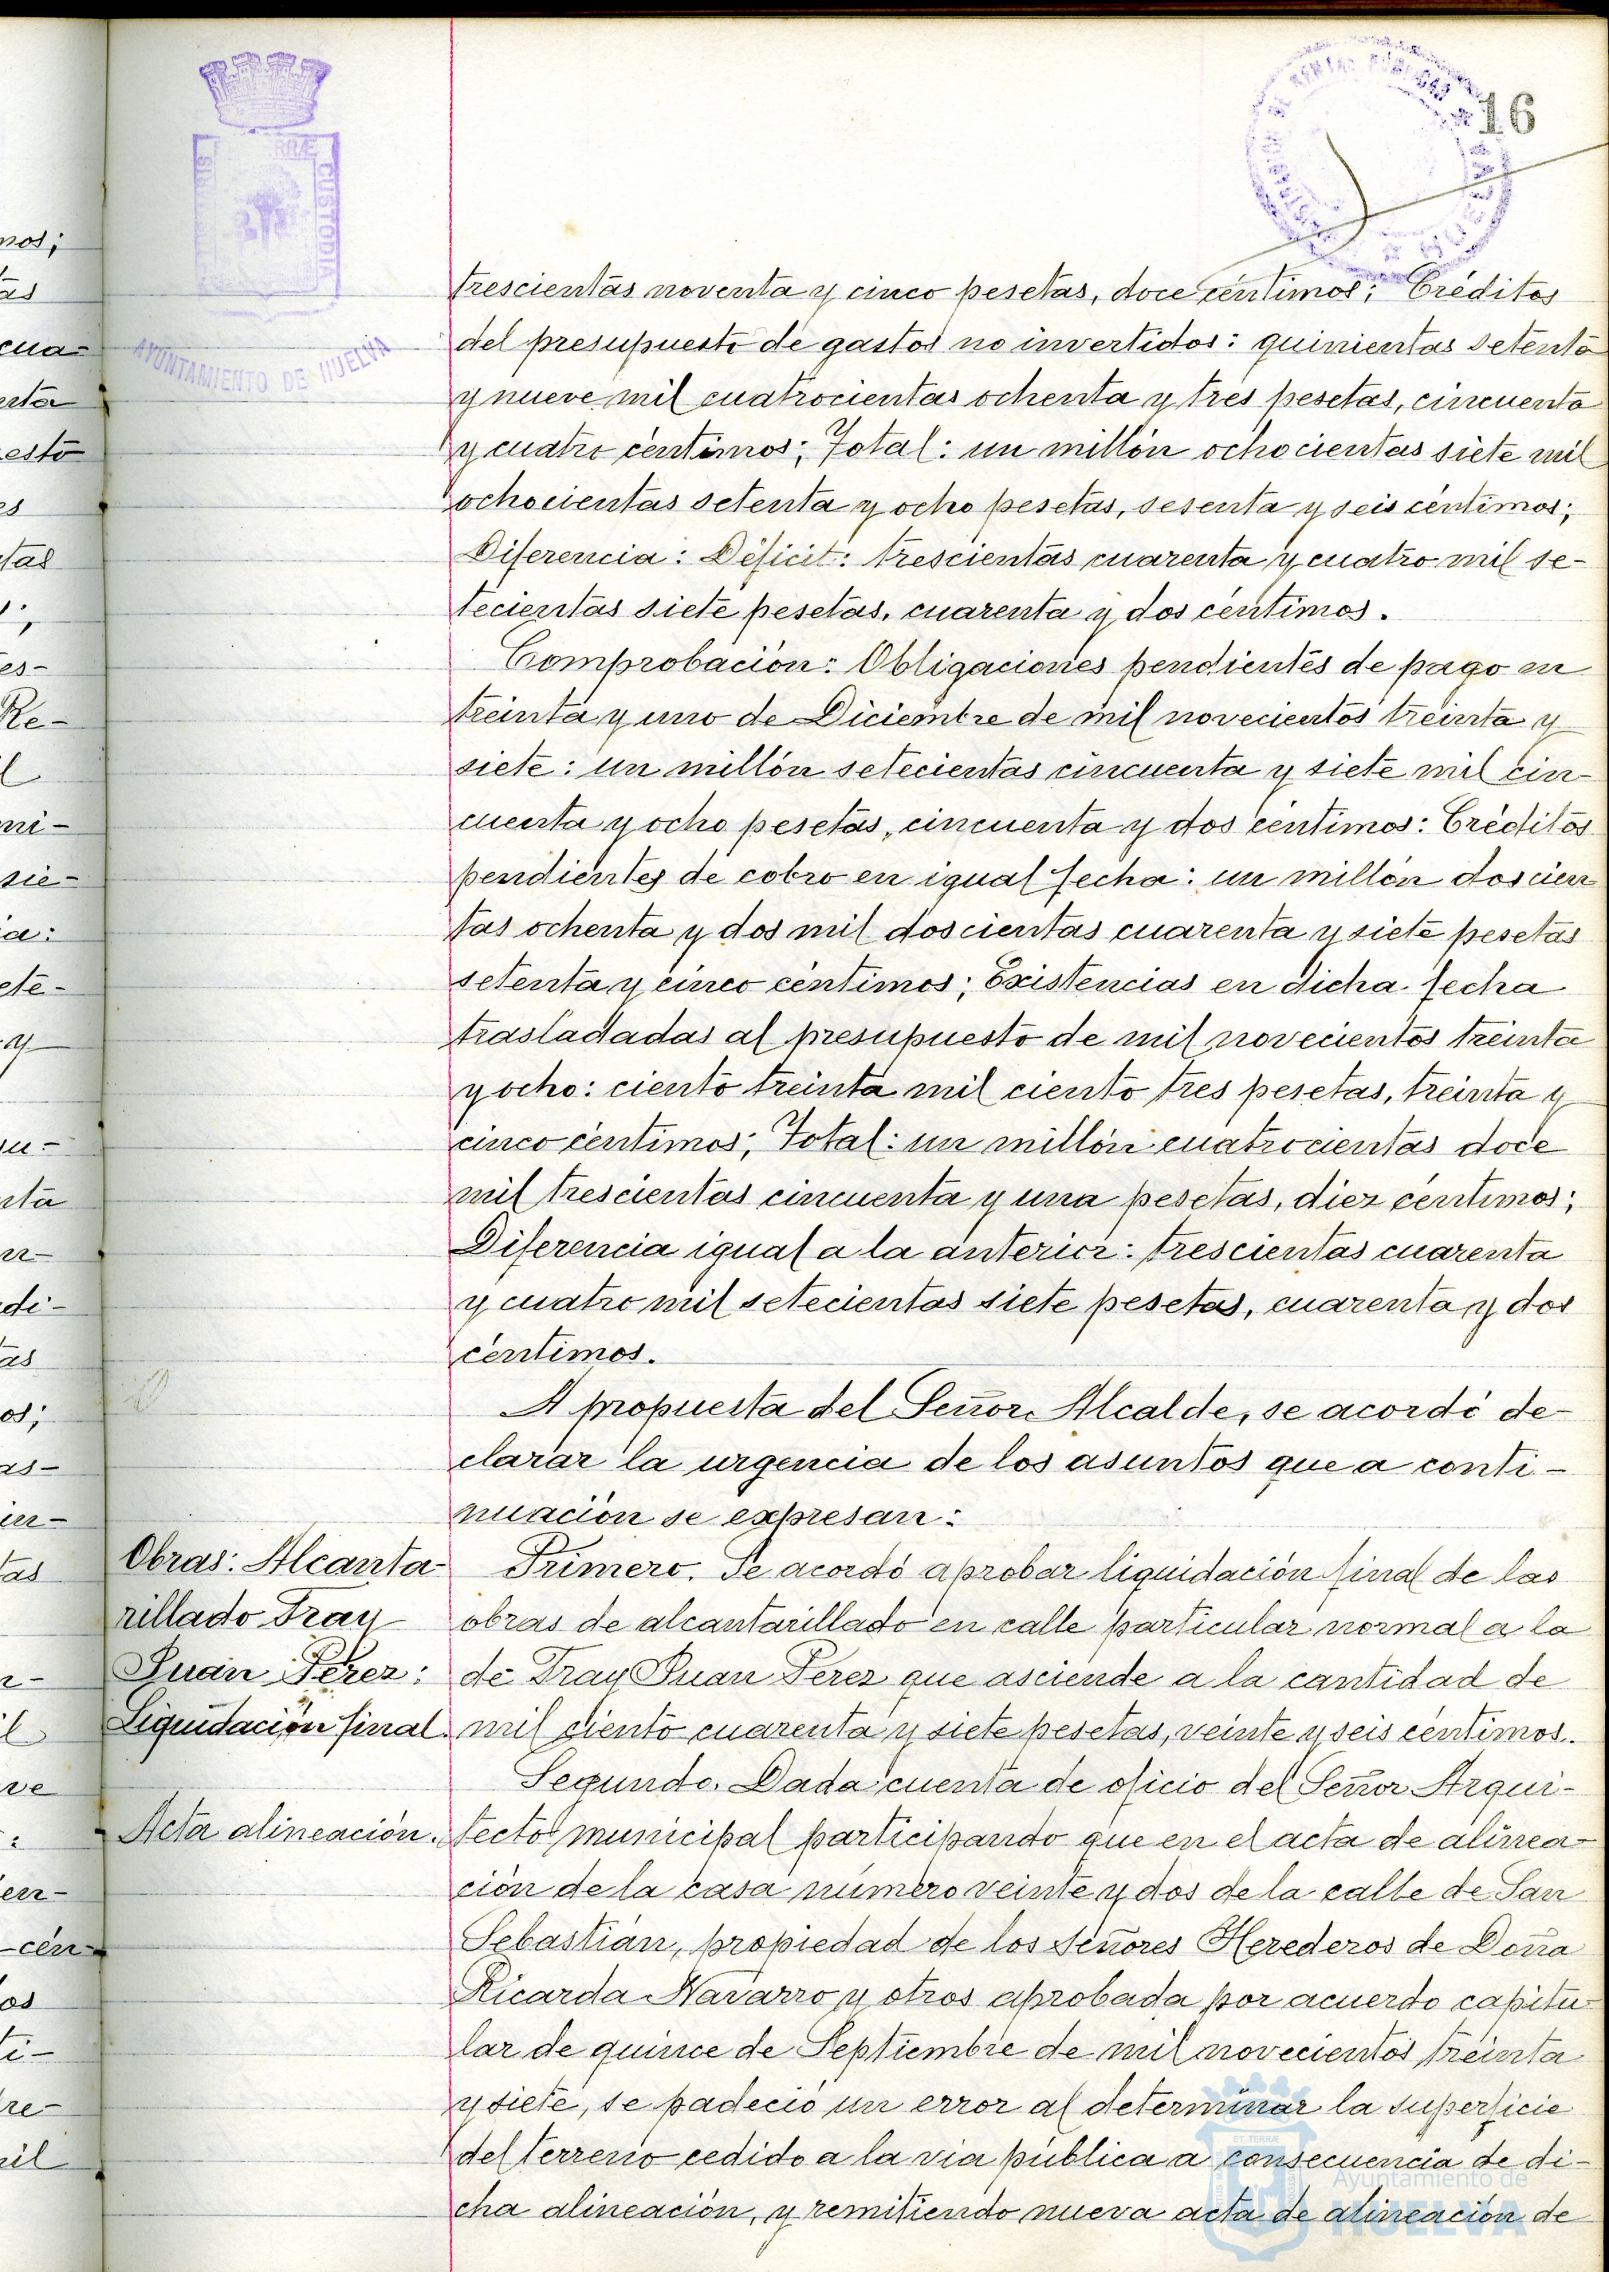 16
RRÆ
CUSTODIA
AYUNTAMIENTO DE HUELVA
trescientas noventa y cinco pesetas, doce centimos; Créditos
del presupuesto de gastos no invertidos: quinientas setenta
y nueve mil cuatrocientas ochenta y tres pesetas, cincuenta
y cuatro céntimos; Total: un millón ochocientas siete mil
ochocientas setenta y ocho pesetas, sesenta y seis céntimos;
Diferencia: Déficit: trescientas cuarenta y cuatro mil se-
tecientas siete pesetas, cuarenta y dos céntimos.
Comprobación: Obligaciones pendientes de pago en
treinta y uno de Diciembre de mil novecientos treinta y
siete: un millón setecientas cincuenta y siete mil cin-
cuenta y ocho pesetas, cincuenta y dos céntimos: Créditos
pendientes de cobro en igual fecha: un millón doscien
tas ochenta y dos mil doscientas cuarenta y siete pesetas
setenta y cinco céntimos; Existencias en dicha fecha
trasladadas al presupuesto de mil novecientos treinta
y ocho: ciento treinta mil ciento tres pesetas, treinta y
cinco céntimos; Total: un millón cuatrocientas doce
mil trescientas cincuenta y una pesetas, diez céntimos;
Diferencia igual a la anterior: trescientas cuarenta
y cuatro mil setecientas siete pesetas, cuarenta y dos
céntimos.
A propuesta del Señor Alcalde, se acordó de-
clarar la urgencia de los asuntos que a conti-
nuación se expresan:
Obras: Alcanta-
rillado Fray
Juan Pérez:
Liquidación final.
Primero. Se acordó aprobar liquidación final de las
obras de alcantarillado en calle particular normal a la
de Fray Juan Perez que asciende a la cantidad de
mil ciento cuarenta y siete pesetas, veinte y seis céntimos.
Acta alineación.
Segundo. Dada cuenta de oficio del Señor Arqui-
tecto municipal participando que en el acta de alinea-
ción de la casa número veinte y dos de la calle de San
Sebastián, propiedad de los Señores Herederos de Doña
Ricarda Navarro y otros aprobada por acuerdo capitu-
lar de quince de Septiembre de mil novecientos treinta
y siete, se padeció un error al determinar la superficie
del terreno cedido a la via pública a consecuencia de di-
cha alineación, y remitiendo nueva acta de alineación de
Ayuntamiento de
HUELVA